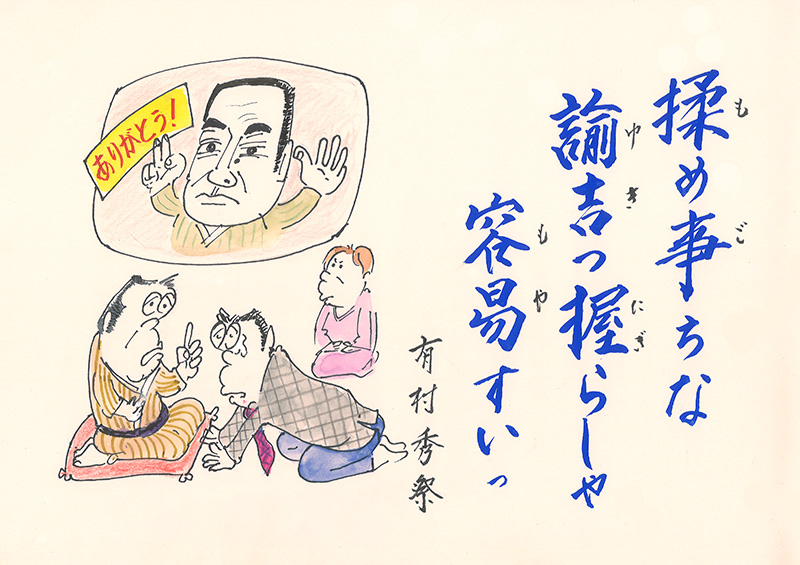 も ご
揉め事ちな
ゆ き にぎ
諭吉つ握らしゃ
も や
容易すいっ
有村秀祭
ありがとう!